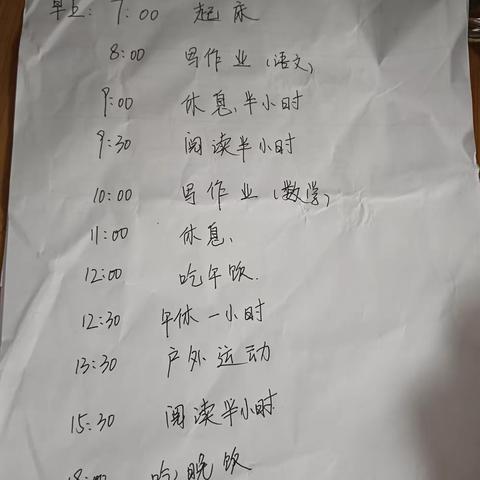 早上: 7:00 起床
8:00 写作业(语文)
9:00 休息,半小时
9:30 阅读半小时
10:00 写作业(数学)
11:00 休息、
12:00 吃午饭.
12:30 午休一小时
13:30 户外运动
15:30 阅读半小时
18:00 吃晚饭